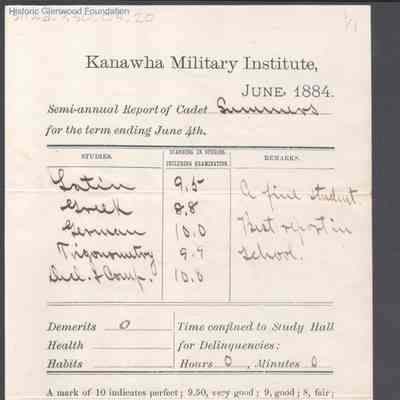 Historic Glenwood Foundation
1/1
Kanawha Military Institute,
JUNE, 1884.
Semi-annual Report of Cadet Summers
for the term ending June 4th.
STUDIES. STANDING IN STUDIES, INCLUDING EXAMINATION. REMARKS.
Latin 9.5 A fine student.
Greek 8.8 Best report in
German 10.0 School.
Trigonometry 9.9
Decl. & Comp. 10.0
Demerits 0 Time confined to Study Hall
Health for Delinquencies:
Habits Hours 0, Minutes 0
A mark of 10 indicates perfect; 9.50, very good; 9, good; 8, fair;